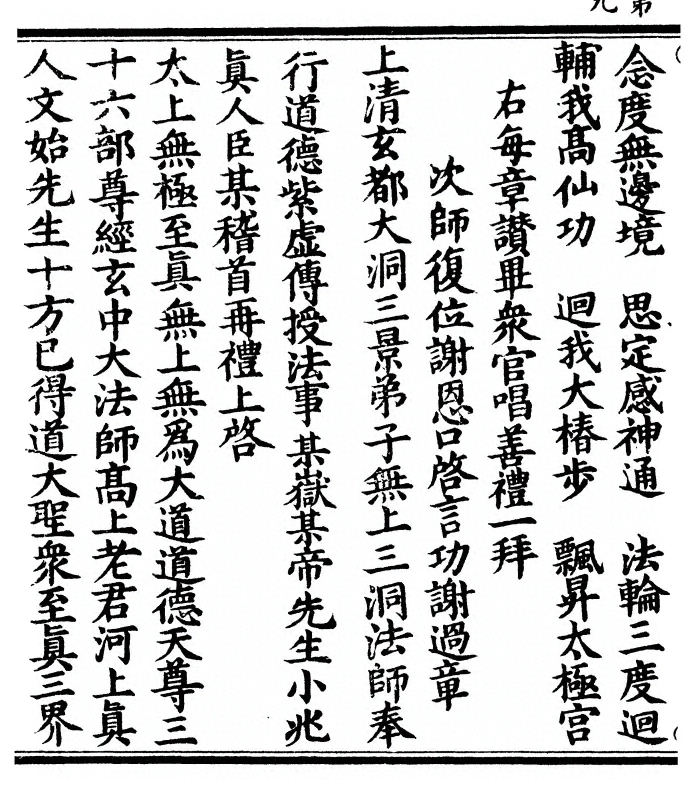 念度無邊境　思定感神通　法輪三度迴
輔我高仙功　迴我大椿步　飄昇太極宮
右每章讚畢衆官唱善禮一拜
次師復位謝恩口啓言功謝過章
上清玄都大洞三景弟子無上三洞法師奉
行道德紫虛傳授法事某嶽某帝先生小兆
眞人臣某稽首再禮上啓
太上無極至眞無上無爲大道道德天尊三
十六部尊經玄中大法師高上老君河上眞
人文始先生十方已得道大聖衆至眞三界